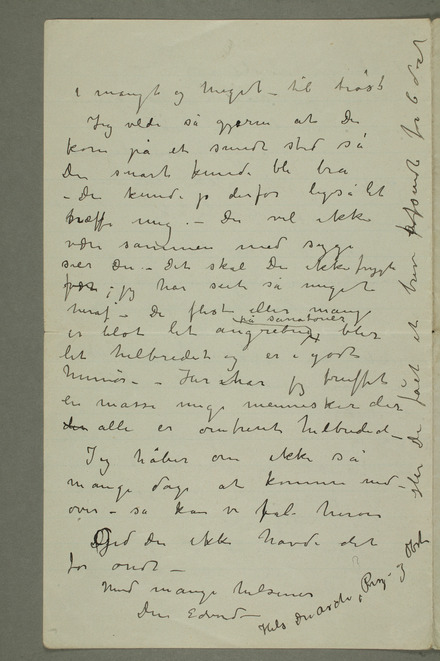 i mangt og meget – til trøst
Jeg vilde så gjerne at Du
kom på et sundt sted så
Du snart kunde bli bra
– Du kunde jo derfor ligså let
træffe mig. – Du vil ikke
være sammen med syge
siger Du – Det skal Du ikke frygt
for; jeg har set så meget
heraf – De fleste eller mange
på sanatorier
er blot let angrebne blir
let helbredet og er i godt
humør – Her har jeg truffet
en masse unge mennesker der
alle er omtrent helbredet
Jeg håber om ikke så
mange dage at komme ned-
over – så kan vi tale herom
Gid Du ikke havde det
for ondt –
Med mange hilsener
Din Edvard –
Hils
eller Du fået et brev afsendt for 6 dage